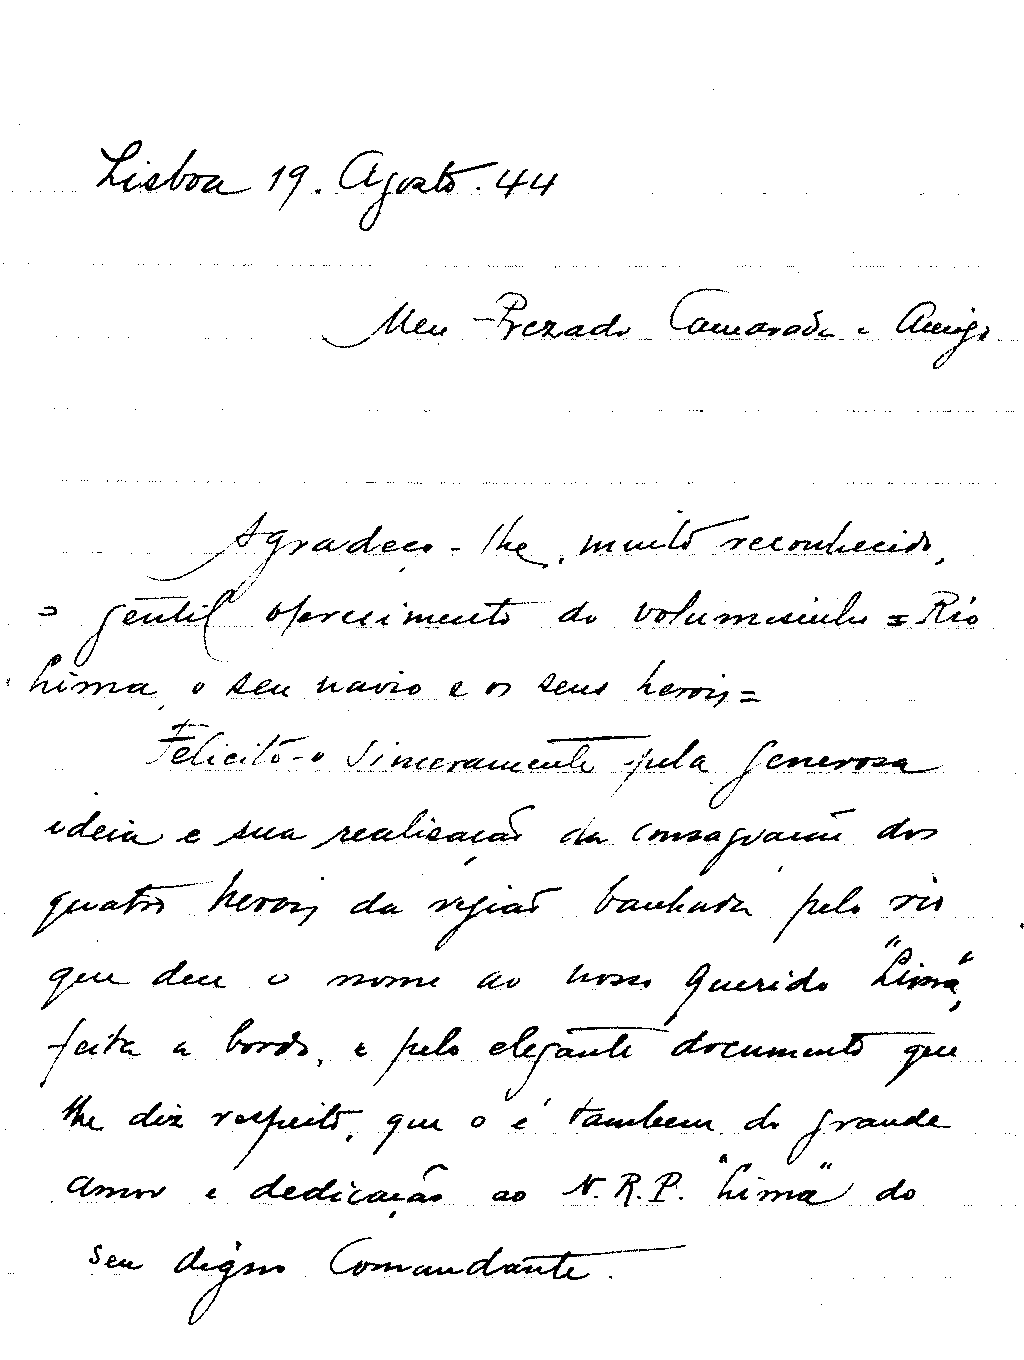 Lisboa 19. Agosto. 44
Meu Prezado Camarada e Amigo
Agradeço-lhe, muito reconhecido,
o gentil oferecimento do volumesinho = Rio
Lima, o seu navio e os seus herois =
Felicito-o sinceramente pela generosa
ideia e sua realisação da consagração dos
quatro herois da região banhada pelo rio
que deu o nome ao nosso querido "Lima",
feita a bordo, e pelo elegante documento que
lhe diz respeito, que o é tambem do grande
amor e dedicação ao N.R.P. "Lima" do
seu digno Comandante.